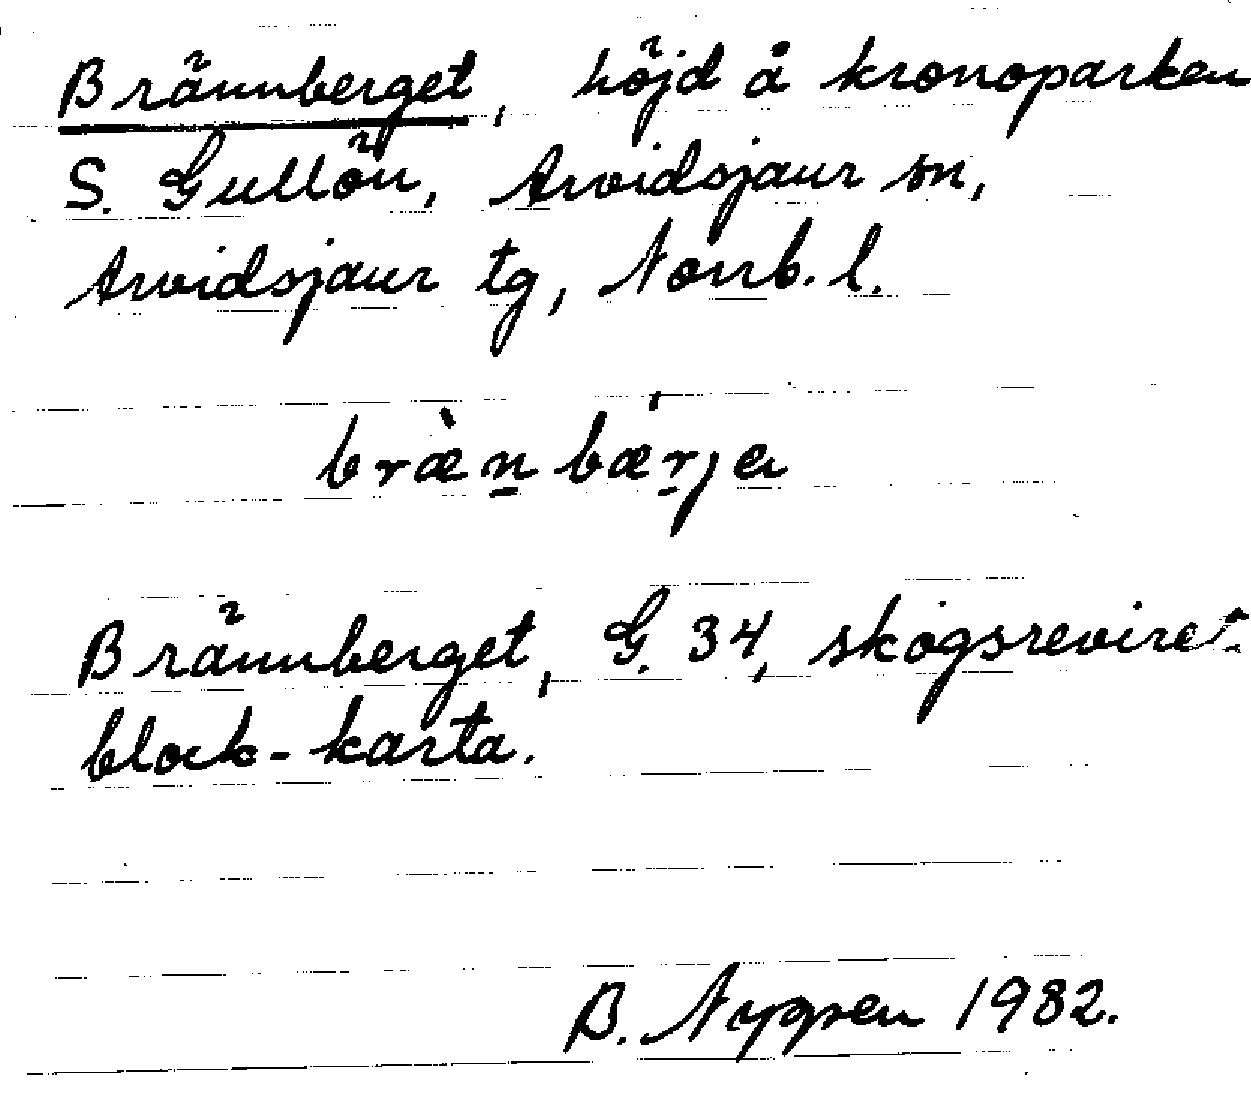 Brännberget, höjd å kronoparken
S. Gullön, Arvidsjaur sn,
Arvidsjaur tg, Norrb. l.
bræ̀n̲bær̲ja
Brännberget, G. 34, skogsreviret
block-karta.
B. 1982.